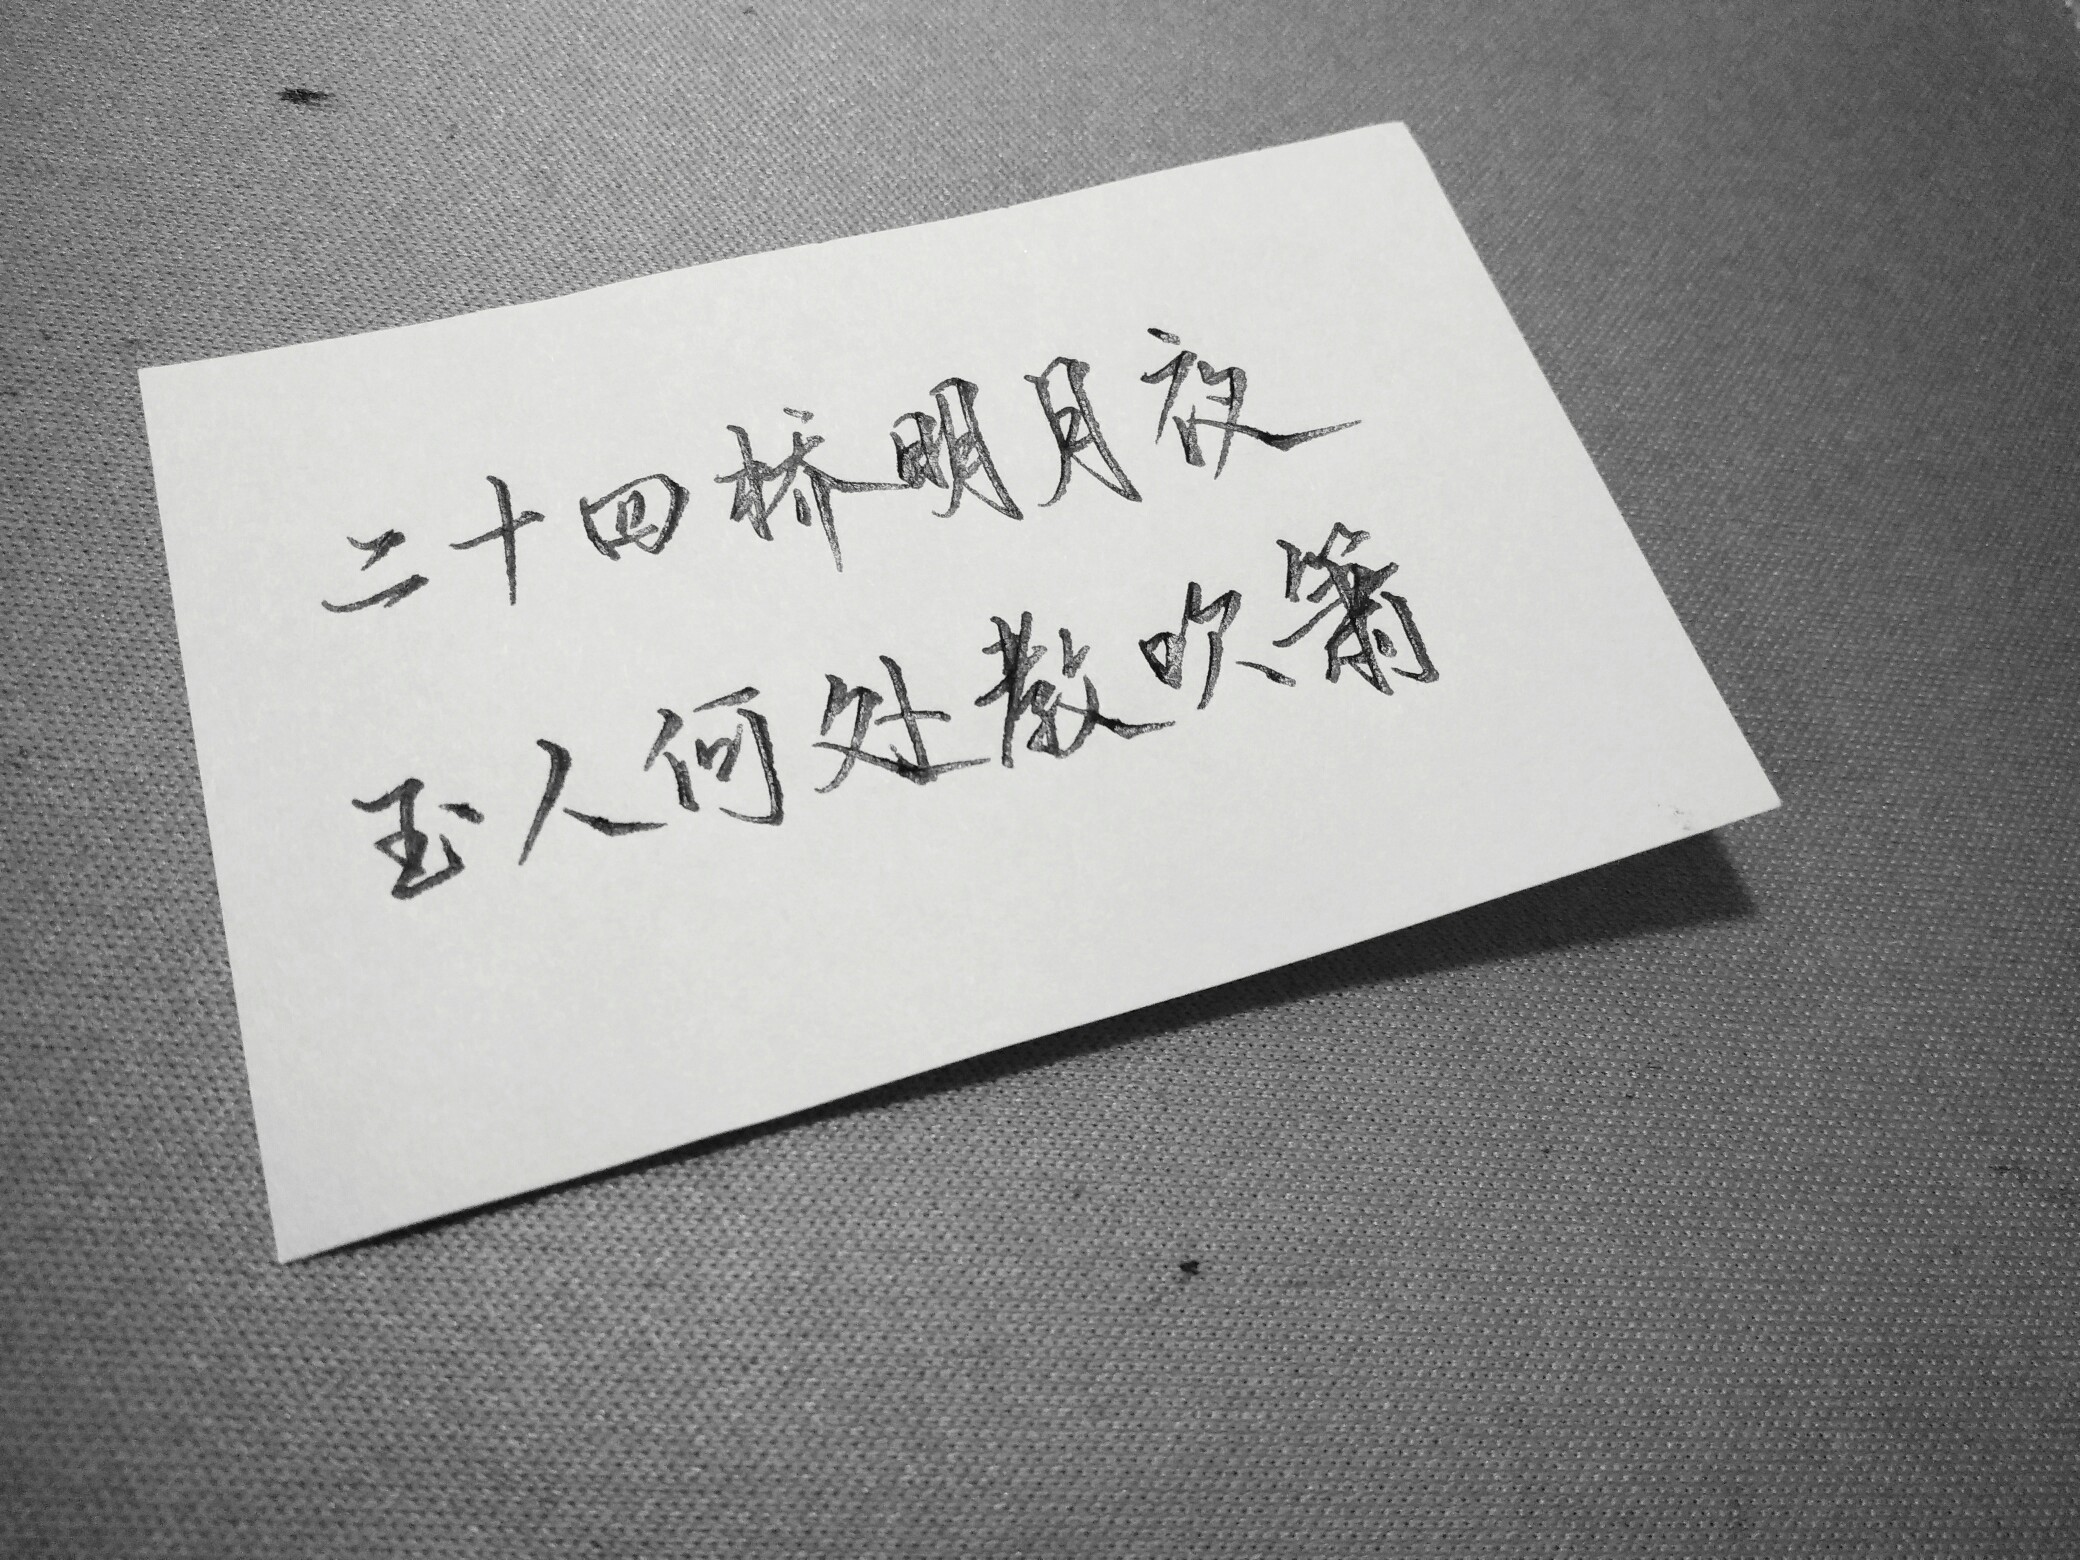 二十四桥明月夜
玉人何处教吹箫